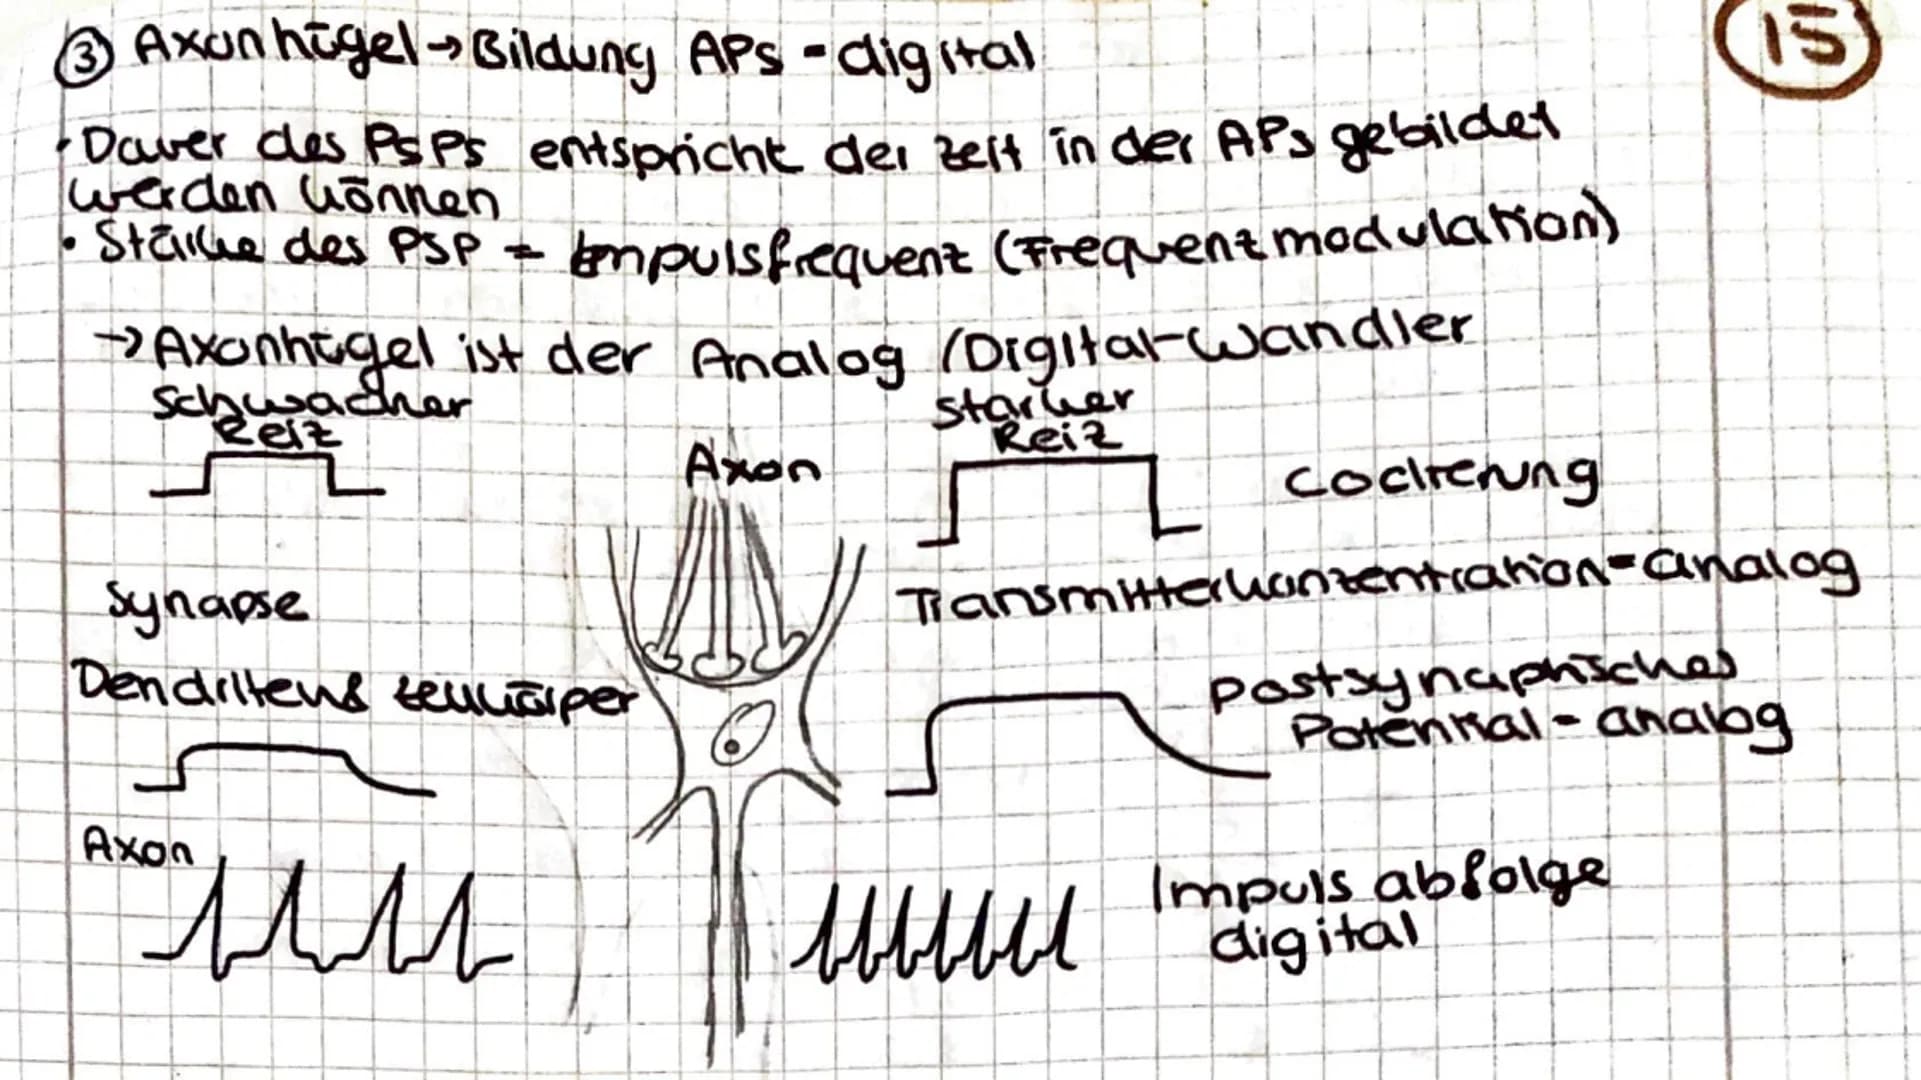 15
③ Axonhügel → Bildung APs - digital
• Dauer des PSPs entspricht der Zeit in der APs gebildet
werden können
• Stärke des PSP = Impulsfrequenz (Frequenzmodulation)
→ Axonhügel ist der Analog/Digital-Wandler
Schwacher
Reiz
starker
Reiz
Axon
Codierung
Synapse
Transmitterkonzentration - analog
Dendriten & Zellkörper
postsynaptisches
Potential - analog
Axon
Impulsabfolge
digital